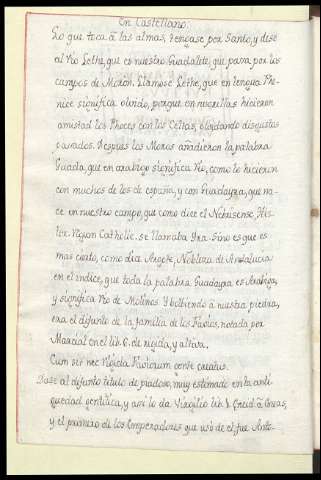 En Castellano.
Lo que toca â las almas, tengase por Santo, y dese
al Rio Lethe, que es nuestro Guadalete, que pasa por los
campos de Moron. Llamose Lethe, que en lengua Phe-
nice significa olvido, porque en sus orillas hicieron
amistad los Phoces con los Celtas, olvidando disgustos
pasados. Despues los Moros añadieron la palabra
Guada, que en arabigo significa Rio, como lo hicieron
con muchos de los de españa, y con Guadayra, que na-
ce en nuestro campo, que como dice el Nebrisense, His-
tor. Regum Catholic. se llamaba Ira. Sino es que es
mas cierto, como dia Argote, Nobleza de Andalucia
en el indice, que toda la palabra Guadayra es Arabiga,
y significa Rio de Molinos. Y bolbiendo â nuestra piedra,
era el difunto de la familia de los Favios, notada por
Marcial en el lib. 6. de rigida, y altiva.
Cum sit nec rigida Faviorum gente creatus.
Dase al difunto titulo de piadoso, muy estimado en la anti
guedad gentilica, y asi lo da Virgilio lib. 1. Eneid. â Eneas,
y el primero de los Emperadores que usò de el fue Anto-